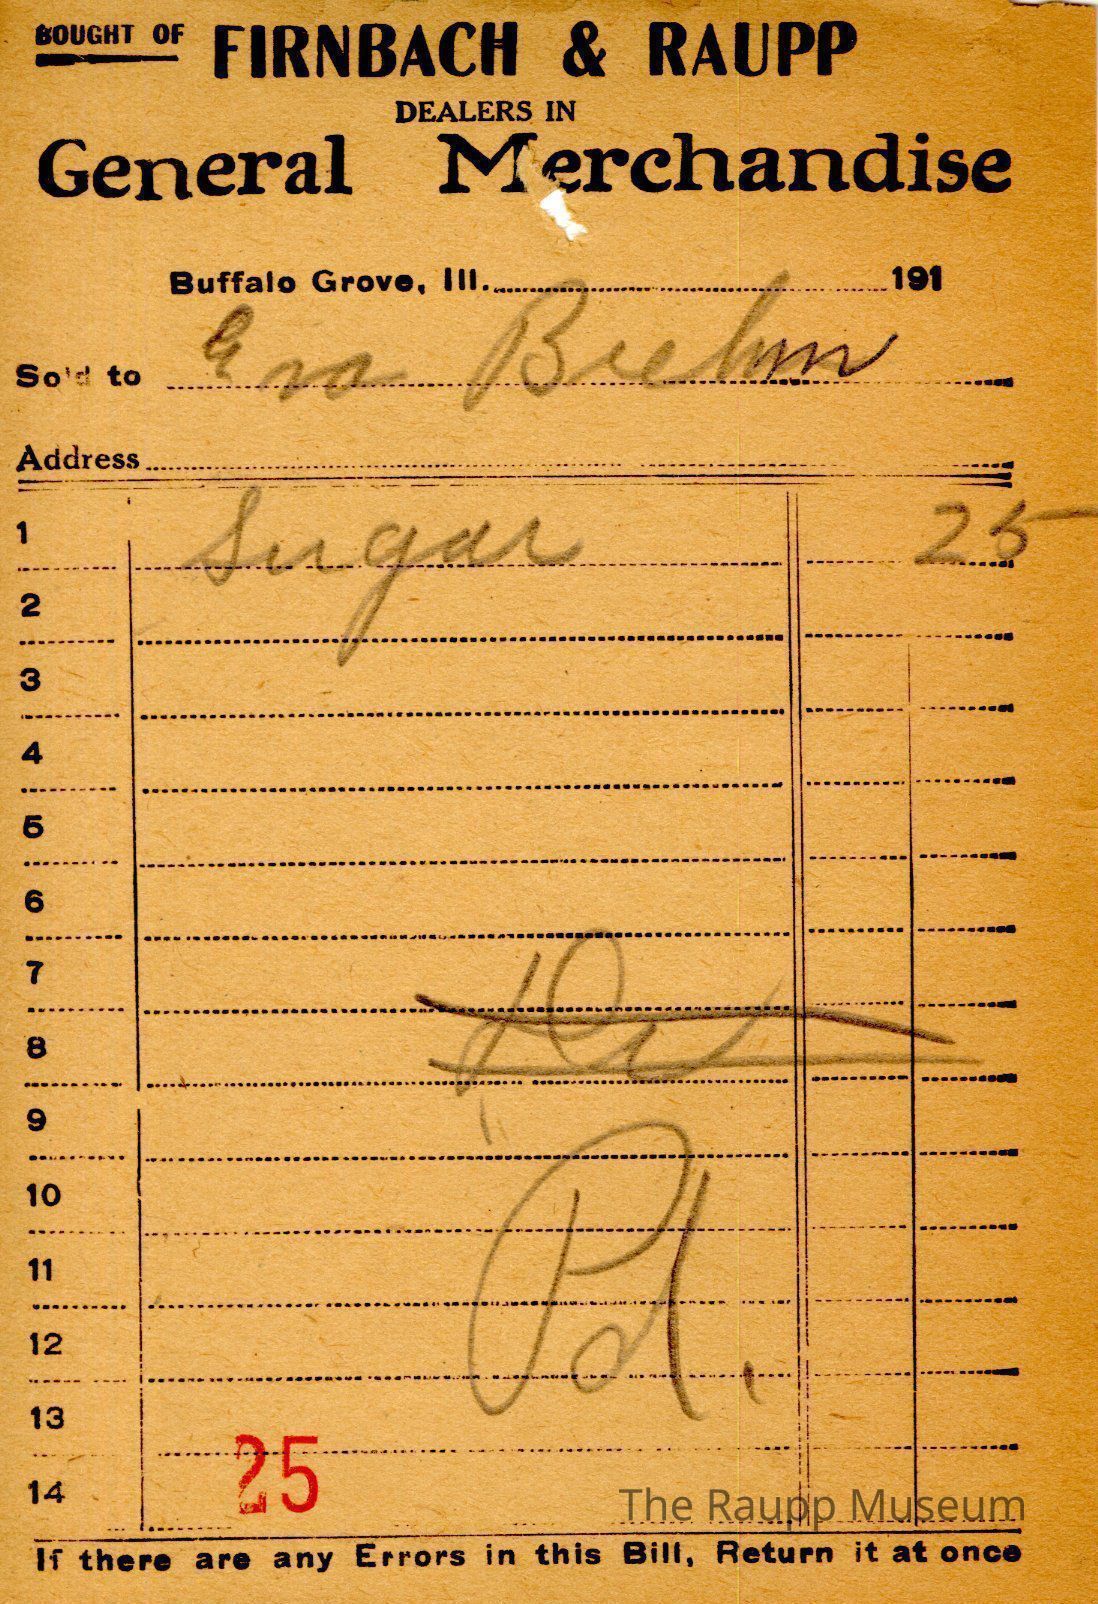 BOUGHT OF FIRNBACH & RAUPP
DEALERS IN
General Merchandise
Buffalo Grove, Ill. 191
Sold to Eva Boehm
Address
1 Sugar 25
2
3
4
5
6
7
8
9
10
11
12
Pd.
13
14 25
The Raupp Museum
If there are any Errors in this Bill, Return it at once